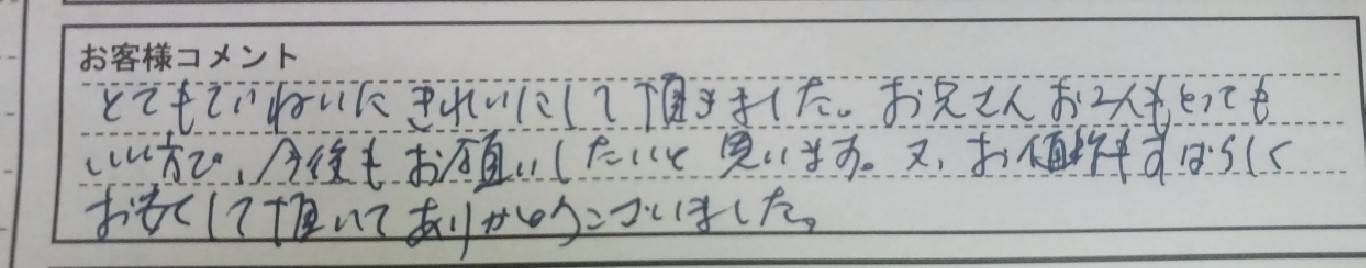 お客様コメント
とてもていねいにきれいにして頂きました。お兄さんお2人もとっても
いい方で、今後もお願いしたいと思います。又、お値段もすばらしく
お安くして頂いてありがとうございました。